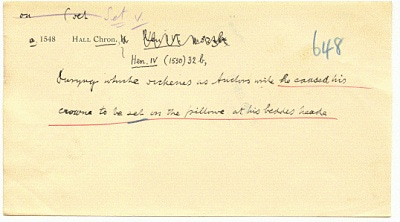 on (vel Set v.
a 1548 HALL Chron.
648
Hen. IV (1550) 32 b,
Duryng whiche sickenes as Auctors write he caused his
crowne to be set on the pillowe at his beddes heade